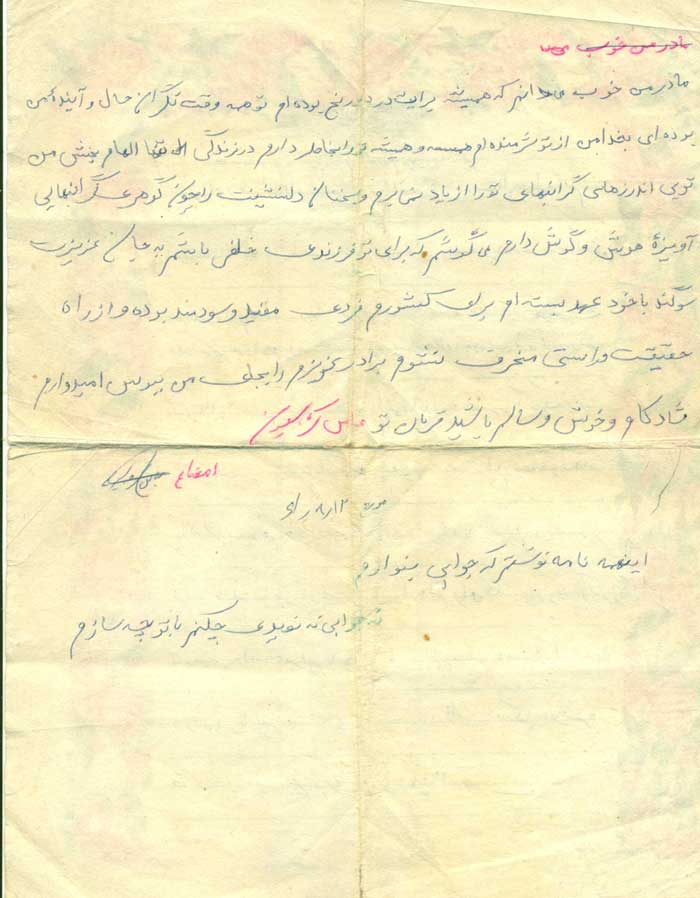 مادر من خوب
مادر من خوب می دانم که همیشه برایت در درد و رنج بوده ام تو همه وقت نگران حال و آینده من
بوده ای بخدا من از تو شرمنده ام و همیشه ترا بخاطر دارم در زندگی تنها الهام بخش من
توئی اندرزهای گرانبهای تو را از یاد نمی برم و سخنان دلنشینت را چون گوهری گرانبهایی
آویزهٔ هوش و گوش دارم می کوشم که برای تو فرزندی خلف باشم به جان عزیزت
سوگند با خود عهد بسته ام برای کشورم فردی مفید و سودمند بوده و از راه
حقیقت و راستی منحرف نشوم برادر عزیزم را بجای من ببوس امیدوارم
شادکام و خوش و سالم باشید قربان تو
امضاء
اینهمه نامه نوشتم که جوابی بنوازم
نه جوابی نه نویدی چکنم با تو چه سازم